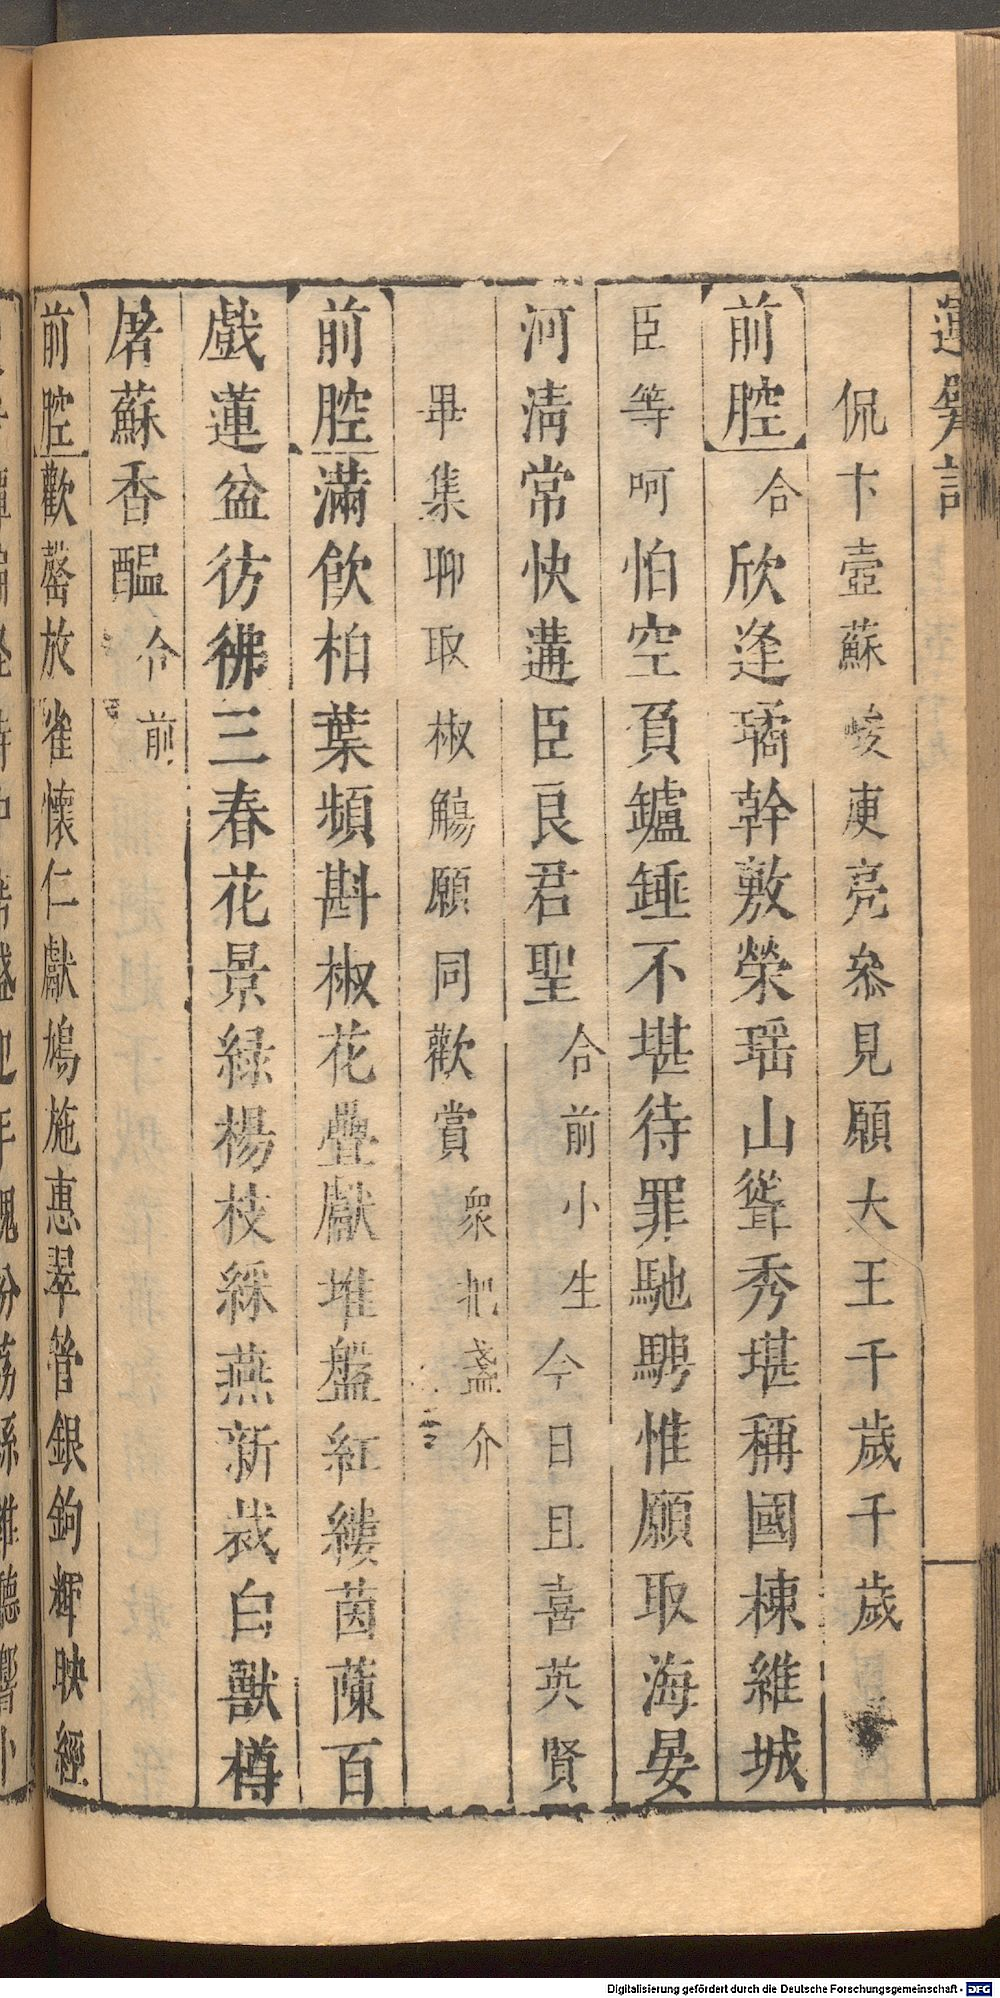 運甓記
侃卞壼蘇峻庾亮叅見願大王千歲千歲
前腔合欣逢璚幹敷榮瑶山聳秀堪稱國棟維城
臣等呵怕空負鑪錘不堪待罪馳騁惟願取海晏
河淸常快遘臣良君聖合前小生今日且喜英賢
畢集聊取椒觴願同歡賞衆把盞介
前腔滿飮柏葉頻斟椒花疊獻堆盤紅縷茵蔯百
戲蓮盆彷彿三春花景綠楊枝綵燕新裁白獸樽
屠蘇香醖合前
前腔歡罄放雀懷仁獻鳩施惠翠管銀鉤輝映經
Digitalisierung gefördert durch die Deutsche Forschungsgemeinschaft - DFG